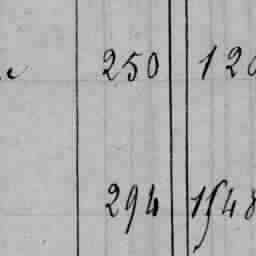 250 120
294 1548